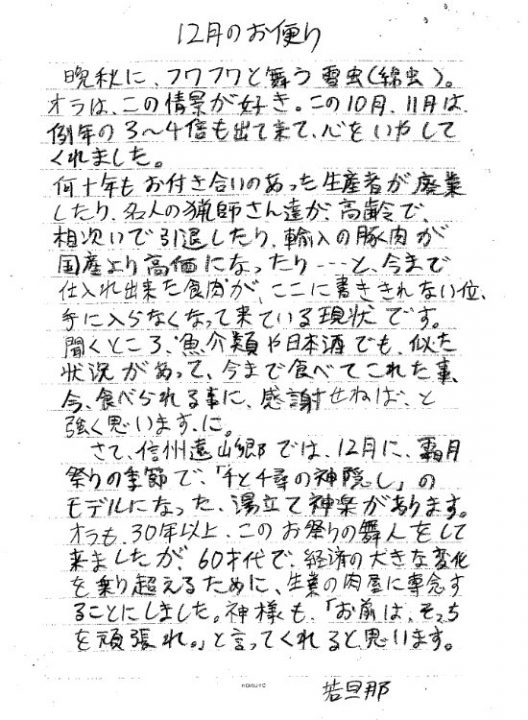 12月のお便り
晩秋に、フワフワと舞う雪虫(綿虫)。
オラは、この情景が好き。この10月、11月は、
例年の3〜4倍も出て来て、心をいやして
くれました。
何十年もお付き合いのあった生産者が廃業
したり、名人の猟師さん達が、高齢で、
相次いで引退したり、輸入の豚肉が
国産より高価になったり……と、今まで
仕入れ出来た食肉が、ここに書ききれない位、
手に入らなくなって来ている現状です。
聞くところ、魚介類や日本酒でも、似た
状況があって、今まで食べてこれた事、
今、食べられる事に、感謝せねば、と
強く思います、に。
さて、信州遠山郷では、12月に、霜月
祭りの季節で、「千と千尋の神隠し」の
モデルになった、湯立て神楽があります。
オラも、30年以上、このお祭りの舞人をして
来ましたが、60才代で、経済の大きな変化
を乗り超えるために、生業の肉屋に専念す
ることにしました。神様も、「お前は、そっち
を頑張れ。」と言ってくれると思います。
若旦那
KOKUYO